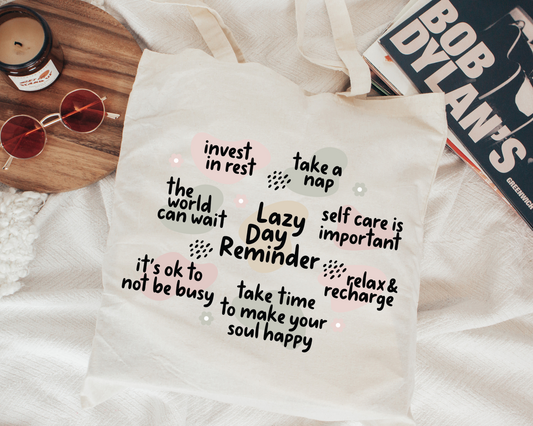 BOB
DYLAN'S
GREENHOCH
invest
in rest
take a
nap
the
world
can wait
Lazy
Day
Reminder
self care is
important
it's ok to
not be busy
relax &
recharge
take time
to make your
soul happy